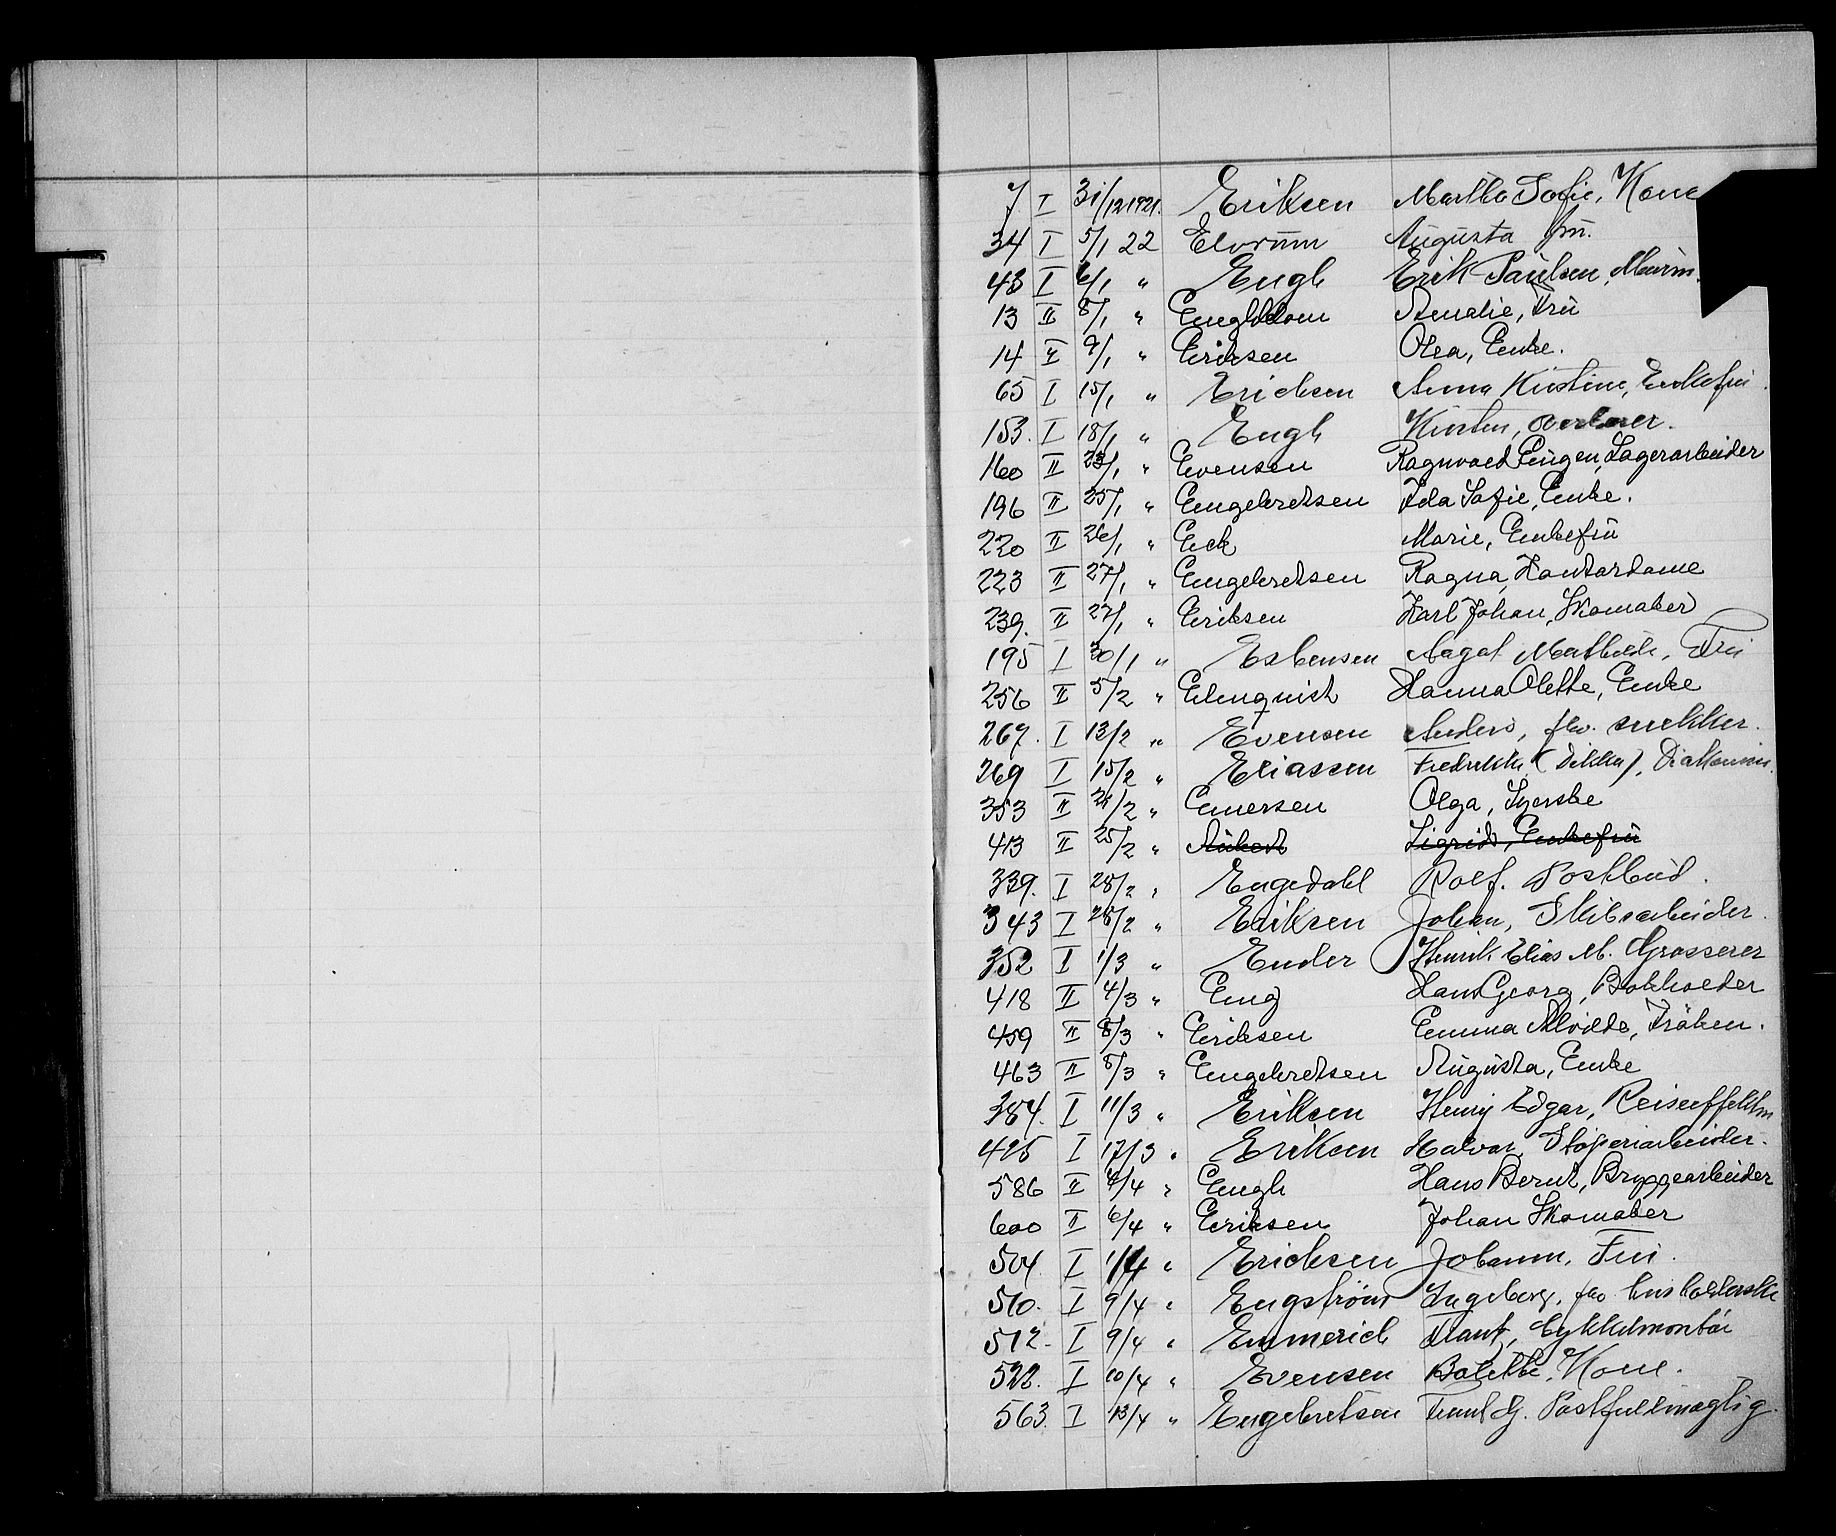 7 I 31/12 1921. Eriksen Martha Sofie, Kone
34 I 5/1 22 Elvrum Augusta fru.
43 I 6/1 " Engh Erik Paulsen, Murm.
13 II 8/1 " Amalie, Fru
14 " 9/1 " Eriksen Olea, Enke.
65 I 15/1 " Erichsen Anna Kirstine, Enkefru.
153. I 18/1 " Engh Kirsten,
160 II 23/1 " Evensen Ragnvald Lagerarbeider
196 II 25/1 " Engebretsen Ida Sofie, Enke.
220 II 26/1 " Eck Marie, Enkefru
223 II 27/1 " Engebretsen Ragna, Kontordame
239. II 27/1 " Eriksen Karl Johan, Skomaker
195 I 30/1 " Esbensen Aagot Mathilde, Fru
256 II 5/2 " Elmquist Hanna Olette, Enke
267. I 13/2 " Evensen Anders, fhv. snekker.
269 I 15/2 " Eliassen Fredrikke (Dikka),
353 II 21/2 " Emersen Olga, Syerske
413 II 25/2 " Sigrid, Enkefru
339. I 28/2 " Engedahl Rolf. Postbud.
343 I 28/2 " Eriksen Johan, Skibsarbeider.
352 I 1/3 " Ender Henrik Elias M. Grosserer
418 II 4/3 " Eng Hans Georg, Bokholder
459 II 8/3 " Eriksen Emma Alvilde, Frøken.
463 II 8/3 " Engebretsen Augusta, Enke
384. I 11/3 " Eriksen Henry Edgar, Reiseeffektm
425 I 17/3 " Eriksen Halvor, Støperiarbeider.
586 II 4/4 " Engh Hans Bernt, Bryggearbeider
600 II 6/4 " Eriksen Johan Skomaker
504. I 1/4 " Erichsen Johanne, Fru.
510. I 9/4 " Engstrøm Ingeborg, fhv. husholderske
512. I 9/4 " Emmerich Frantz, Cykkelmontør
522. I 10/4 " Evensen Bolette, Kone.
563. I 13/4 " Engebretsen G. Postfuldmægtig.